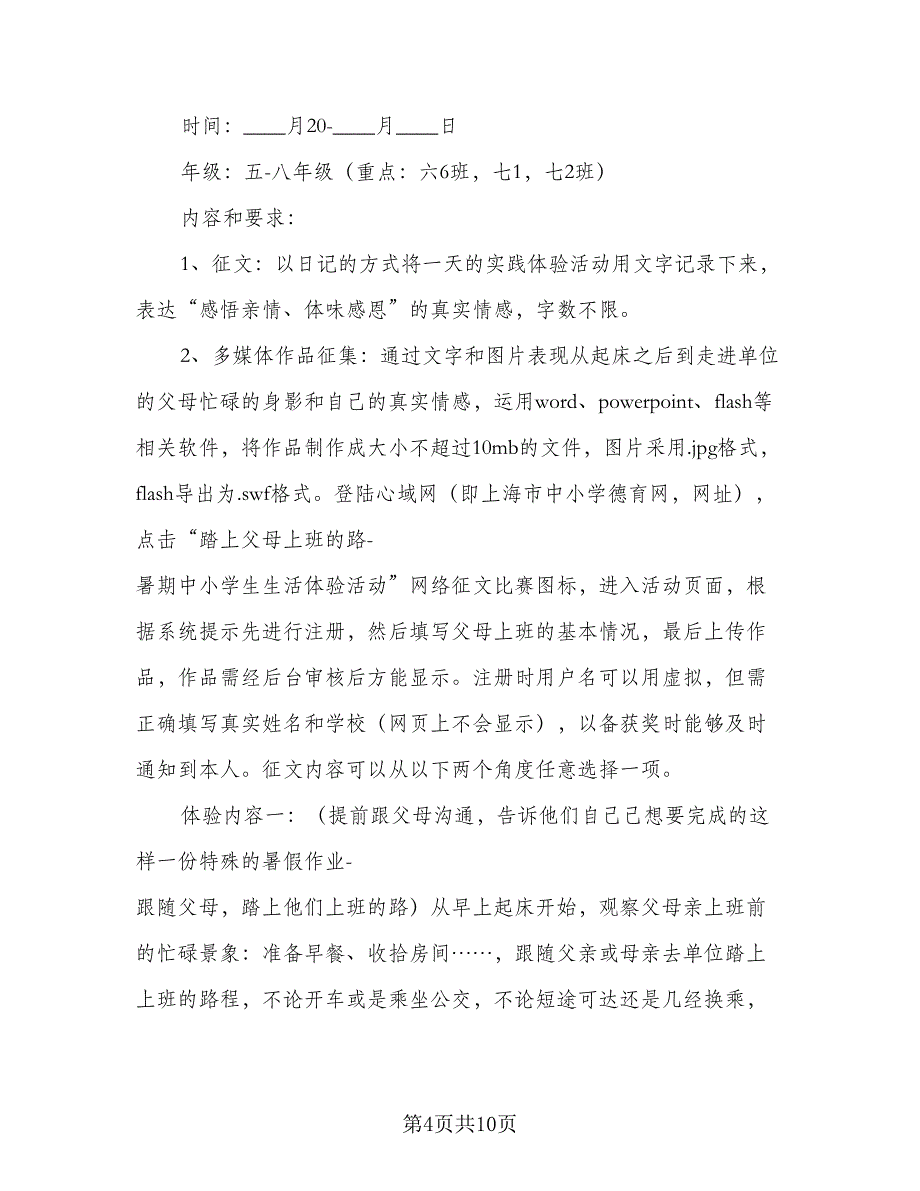 时间：____月20-____月____日
年级：五-八年级（重点：六6班，七1，七2班）
内容和要求：
1、征文：以日记的方式将一天的实践体验活动用文字记录下来，
表达“感悟亲情、体味感恩”的真实情感，字数不限。
2、多媒体作品征集：通过文字和图片表现从起床之后到走进单位
的父母忙碌的身影和自己的真实情感，运用word、powerpoint、flash等
相关软件，将作品制作成大小不超过10mb的文件，图片采用.jpg格式，
flash导出为.swf格式。登陆心域网（即上海市中小学德育网，网址），
点击“踏上父母上班的路-
暑期中小学生生活体验活动”网络征文比赛图标，进入活动页面，根
据系统提示先进行注册，然后填写父母上班的基本情况，最后上传作
品，作品需经后台审核后方能显示。注册时用户名可以用虚拟，但需
正确填写真实姓名和学校（网页上不会显示），以备获奖时能够及时
通知到本人。征文内容可以从以下两个角度任意选择一项。
体验内容一：（提前跟父母沟通，告诉他们自己己想要完成的这
样一份特殊的暑假作业-
跟随父母，踏上他们上班的路）从早上起床开始，观察父母亲上班前
的忙碌景象：准备早餐、收拾房间……，跟随父亲或母亲去单位踏上
上班的路程，不论开车或是乘坐公交，不论短途可达还是几经换乘，
第4页共10页